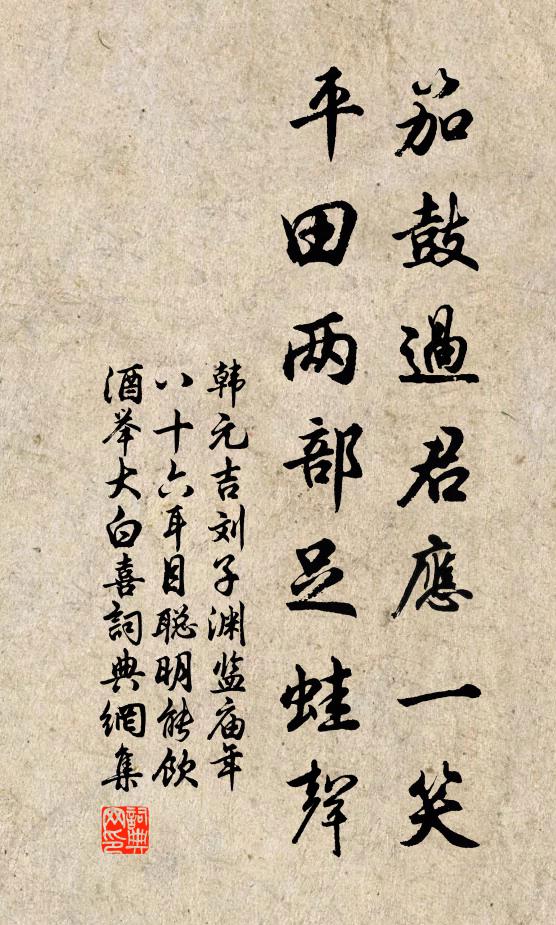 笳鼓過君應一笑
平田两部足蛙聲
韩元吉刘子渊监庙年
八十六耳目聪明能饮
酒举大白喜詞典網集
詞典网印